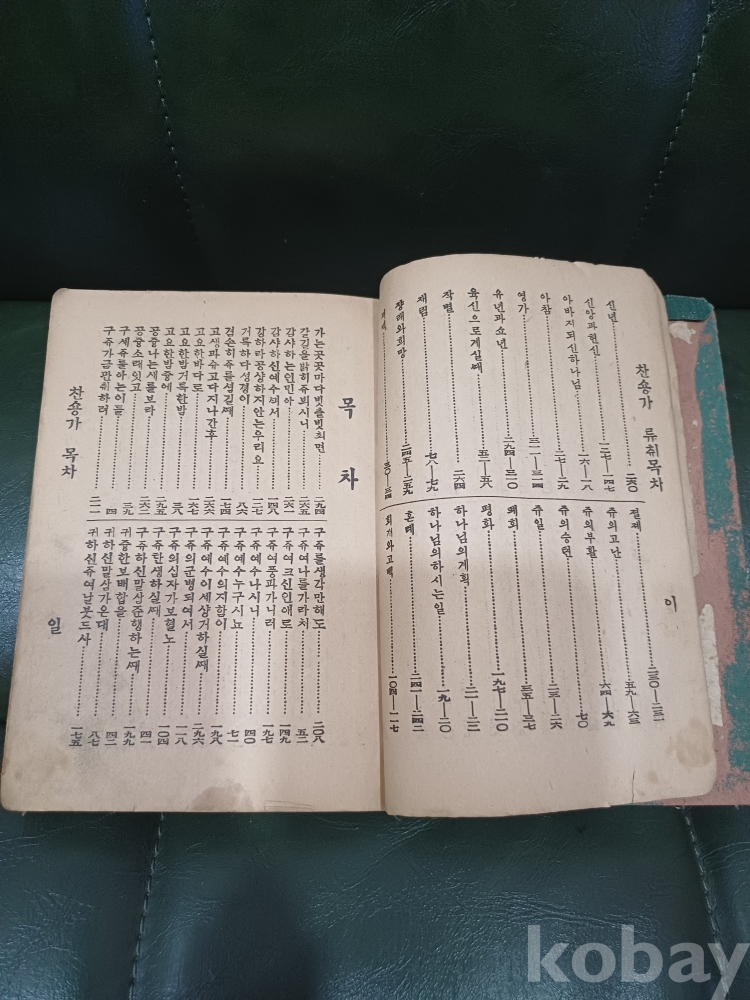 찬송가 류취목차
신년 二六〇
신앙과헌신
아바지되신하나님
아참
영가
유년과쇼년 二九四—三一〇
육신으로계실때 五二—五八
작별 二六四
재림 七八—七九
장래와희망 二四五—二五九
절제 二三〇—二三一
쥬의고난 五九—六三
쥬의부활 六四—六九
쥬의승텬 七〇
쥬일
폐회 三五—三七
평화 一九七—二一〇
하나님의계획 二一—二三
하나님의하시는일 一九—二〇
혼례 二四一—二四二
회개와고백 一〇四—一一七
이
목차
가는곳곳마다빗츨빗최면 二九四
갈길을밝히쥬뢰시니 二六五
감샤하는인민아 二六一
감샤하신예수씨서 一四八
강하라공상하지안는우리요 一三七
거룩하다성경이 八六
겸손히쥬를셩길째 一七四
고생파슈고다지나간후 二六六
고요한바다로 一六七
고요한밤거룩한밤 三八
고요한밤중에 二九五
공즁나는새를보라 二六二
공즁소래잇고 三九
구세쥬를아는이들 四
구쥬가금관취하려 二一一
구쥬를생각만해도 二〇八
구쥬여나를가라처 五二
구쥬여크신인애로 一四九
구쥬여풍파가니러 一九七
구쥬예수나시니 四〇
구쥬예수누구시뇨 七一
구쥬예수의지함이 一九八
구쥬예수이세샹거하실째 二九六
구쥬의군병되여서 一一八
구쥬의십자가보혈노 一〇四
구쥬탄생하실째 四一
구쥬하신말삼쥰행하는째 一九九
귀즁한보배합을 四二
귀하신말삼가온대 八七
귀하신쥬여날붓드사 一七五
찬송가 목차
일
kobay